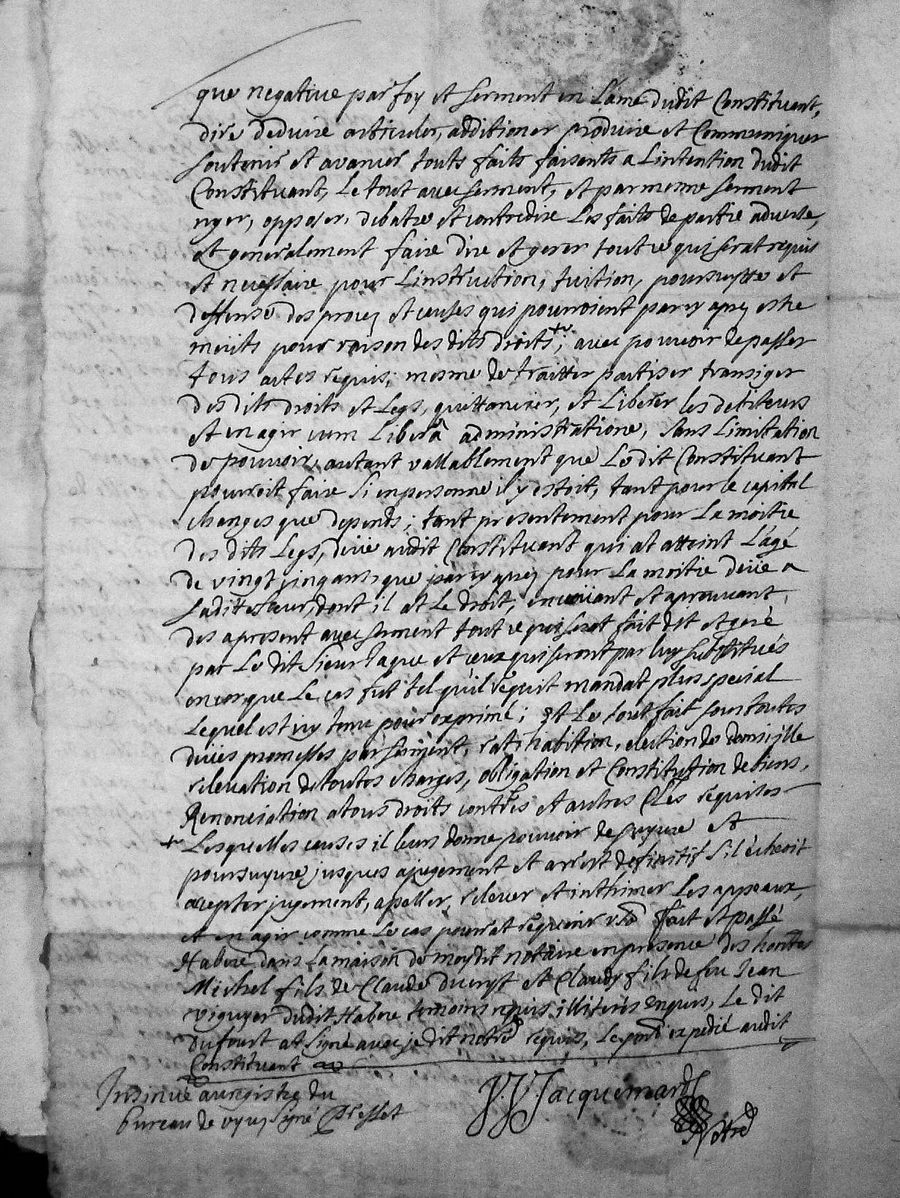 que negative par foy et serment en l'ame dudit Constituant,
dire deduire articuler, additioner produire et Communiquer
soutenir et avancer touts faits faisents a L'intention dudit
Constituant, Le tout avec serment, et par mesme serment
nyer, opposer, debatre et contredire Les faits de partie adverse,
et generalement faire dire et gerer tout ce qui serat requis
et necessaire pour L'instruction, tuition, poursuytte et
deffense des proces et causes qui pourroient par cy apres estre
meüts pour raison des dits droits +; avec pouvoir de passer
tous actes requis; mesme de traitter partiser transiger
des dits droits et Legs, quittancer, et Liberer les debiteurs
et en agir cum Liberâ administratione, sans Limitation
de pouvoir, autant vallablement que Le dit Constituant
pourroit faire si en personne il y estoit, tant pour le capital
changes que depends; tant presentement pour La moitie
des dits Legs, deüe audit Constituant qui at atteint L'agé
de vingt cinq ans, que par cy apres pour La moitie deüe a
saditte soeur, dont il at Le droit, et aprouvant
des apresent avec serment tout ce qui serat fait dit et geré
par Le dit Sieur Jaque et ceux qui seront par luy substitués
encor que Le cas fut tel qu'il requit mandat plus special
Lequel est icy tenu pour exprimé; et Le tout fait sous toutes
deües promesses par serment, ratihabition, election de domicille
relevation de toutes charges, obligation et Constitution de biens,
Renonciation a tous droits contres et autres Cles requises
+ Lesquelles causes il leurs donne pouvoir de suyvre et
poursuyvre jusques a jugement et arrest definitif s'il echeoit
accepter jugement, apeller, relever et inthimer Les appeaux,
et en agir comme Le cas pourrat requerir Fait et passé
Habere dans La maison de moydit notaire en presence des honêtes
Michel fils de Claude Ducrest et Claudy fils de feu Jean
viguyer dudit Habere temoins requis illiterés enquis, Le dit
Dufourt at signé avec je dit notre requis, Le pnt expedié audit
Constituant
J Jacquemard
Notre
Insinué au registre du
bureau de signé Presset